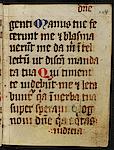 dñe
genti Manus tue fe
cerunt me ⁊ plasma
uerūt me da m̄ intel
lectū ut discā manda
ta tua Qui timent
te uidebunt me ⁊ leta
būnt̄ qa in uerba tua
super speraui Cog
noui dñe qa eq̄tas
iudicia